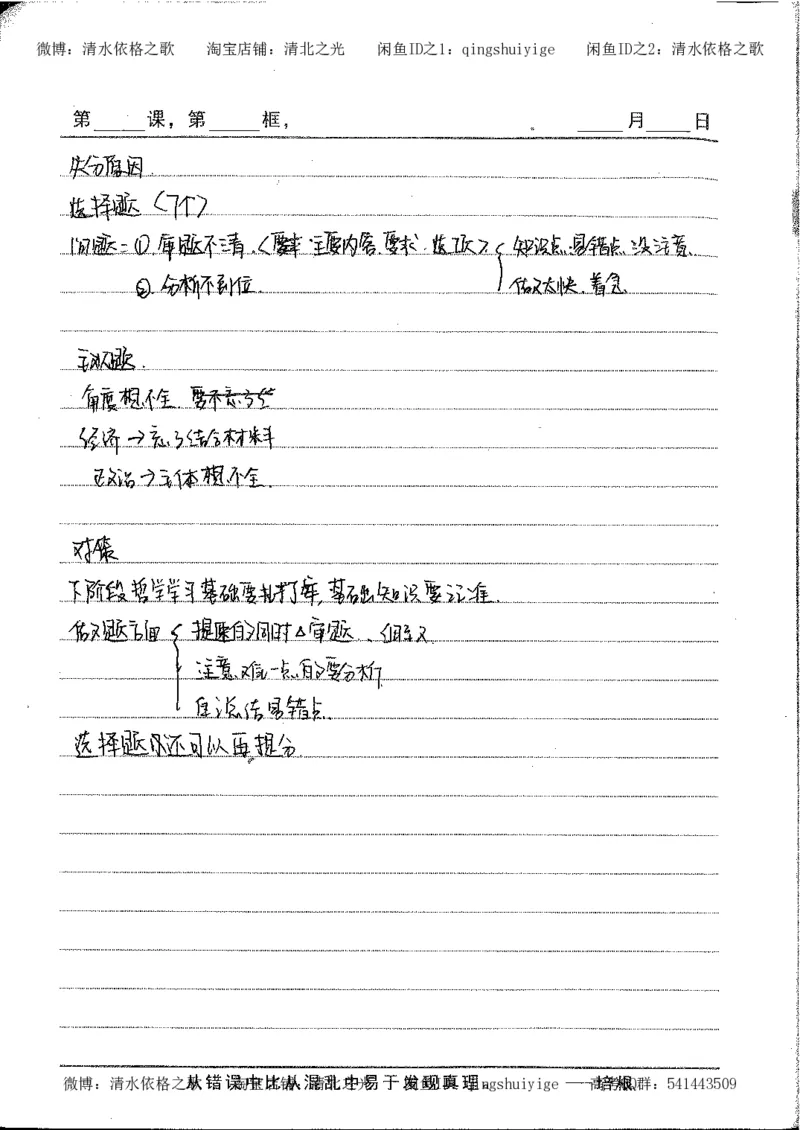 微博：清水依格之歌 淘宝店铺：清北之光 闲鱼ID之1：qingshuiyige 闲鱼ID之2：清水依格之歌
第 课，第 框， 月 日
失分原因
选择题（7个）
问题：① 审题不清、（要求 主要内容、要求、选项） 知识点、易错点、没注意
② 分析不到位 做又太快、着急
主观题.
角度想不全
经济→忘了结合材料
政治→主体想不全.
对策
下阶段哲学学习基础要扎扎实, 基础知识要记准.
做题方面 提速的同时△审题、
注意难一点的要分析
自总结易错点.
选择题尽还可以再提分.
微博：清水依格之歌 从错误中比从混乱中易于发现真理。 ngshuiyige ——培根 QQ群：541443509